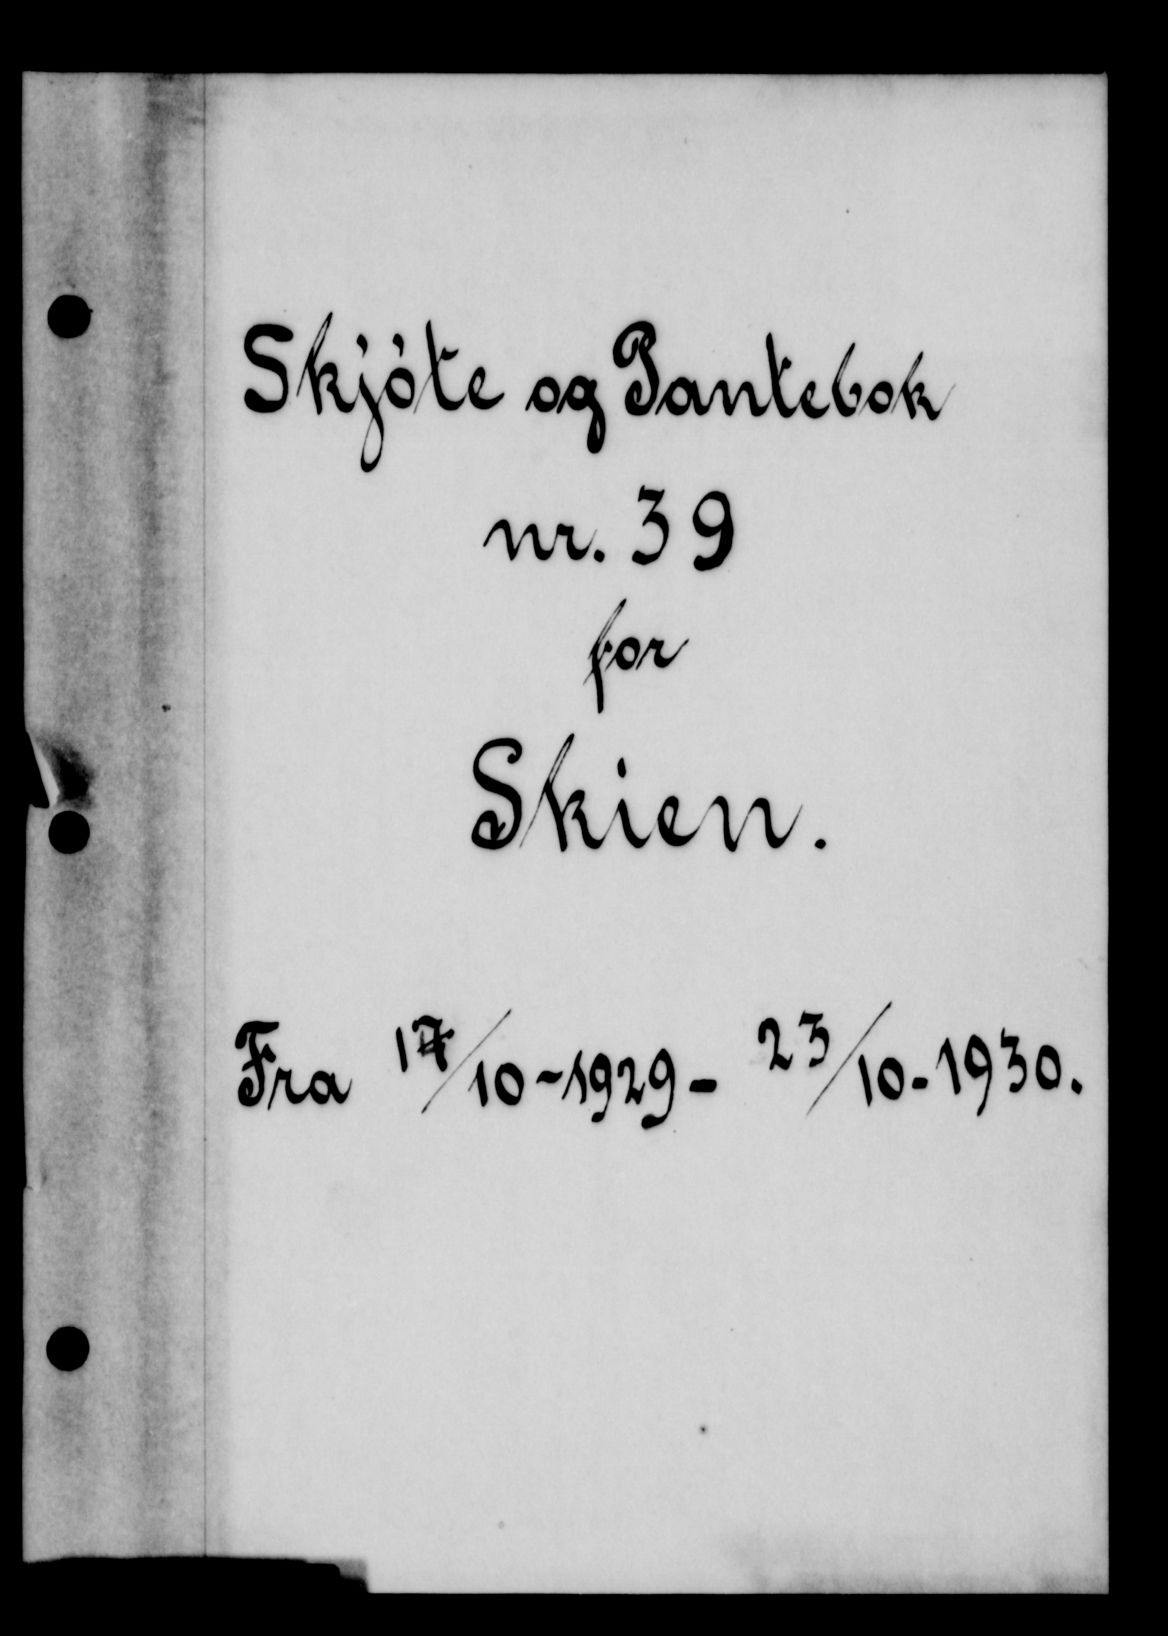 Skjöte og Pantebok
nr. 39
for
Skien.
Fra 17/10-1929- 23/10-1930.